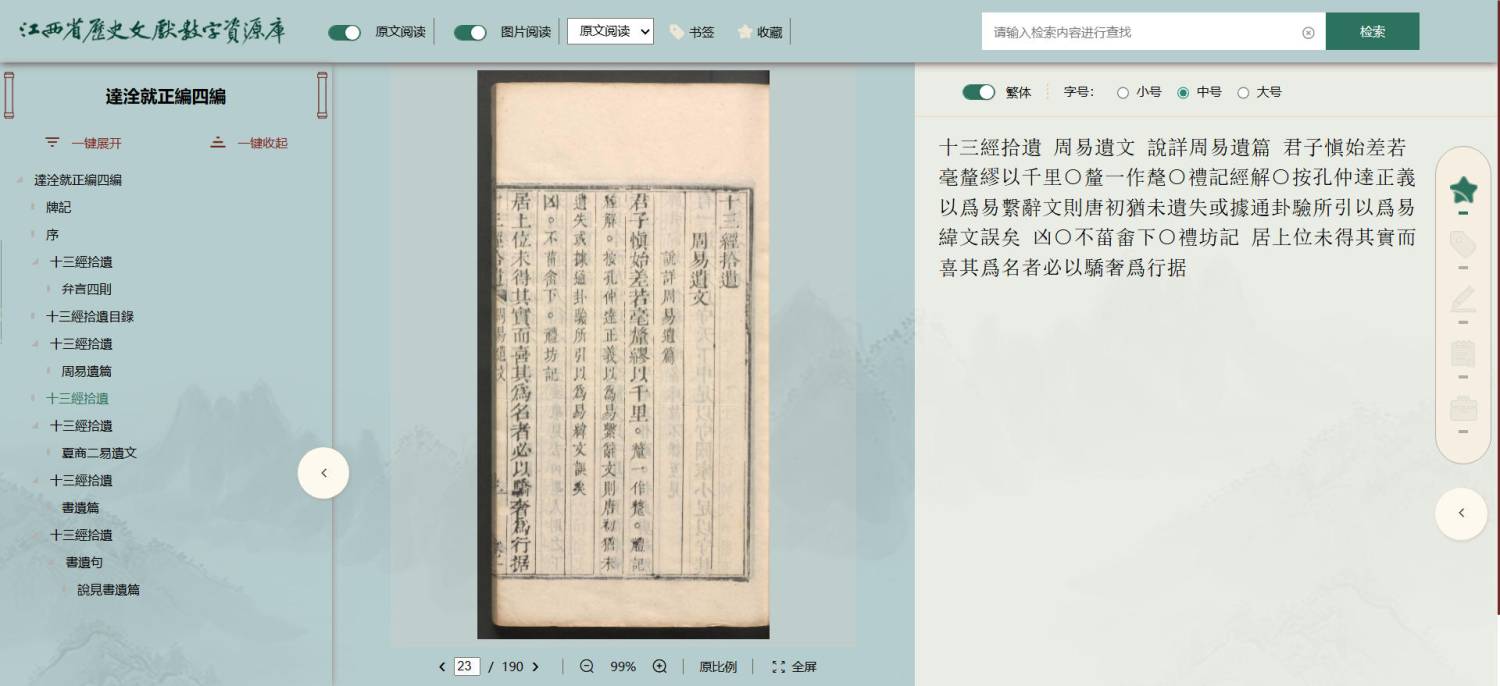 江西省歷史文獻數字資源庫
原文阅读
图片阅读
原文阅读
书签
收藏
请输入检索内容进行查找
检索
達詮就正編四編
一键展开
一键收起
達詮就正編四編
牌記
序
十三經拾遺
弁言四則
十三經拾遺目錄
十三經拾遺
周易遺篇
十三經拾遺
十三經拾遺
夏商二易遺文
十三經拾遺
書遺篇
十三經拾遺
書遺句
說見書遺篇
十三經拾遺
周易遺文
說詳周易遺篇
君子愼始差若毫釐繆以千里。釐一作氂。禮記
經解。按孔仲達正義以爲易繫辭文則唐初猶未
遺失或據通卦驗所引以爲易緯文誤矣
凶。不菑畬下。禮坊記
居上位未得其實而喜其爲名者必以驕奢爲行据
23 / 190
99%
原比例
全屏
繁体
字号：
小号
中号
大号
十三經拾遺 周易遺文 說詳周易遺篇 君子愼始差若
毫釐繆以千里〇釐一作氂〇禮記經解〇按孔仲達正義
以爲易繫辭文則唐初猶未遺失或據通卦驗所引以爲易
緯文誤矣 凶〇不菑畬下〇禮坊記 居上位未得其實而
喜其爲名者必以驕奢爲行据